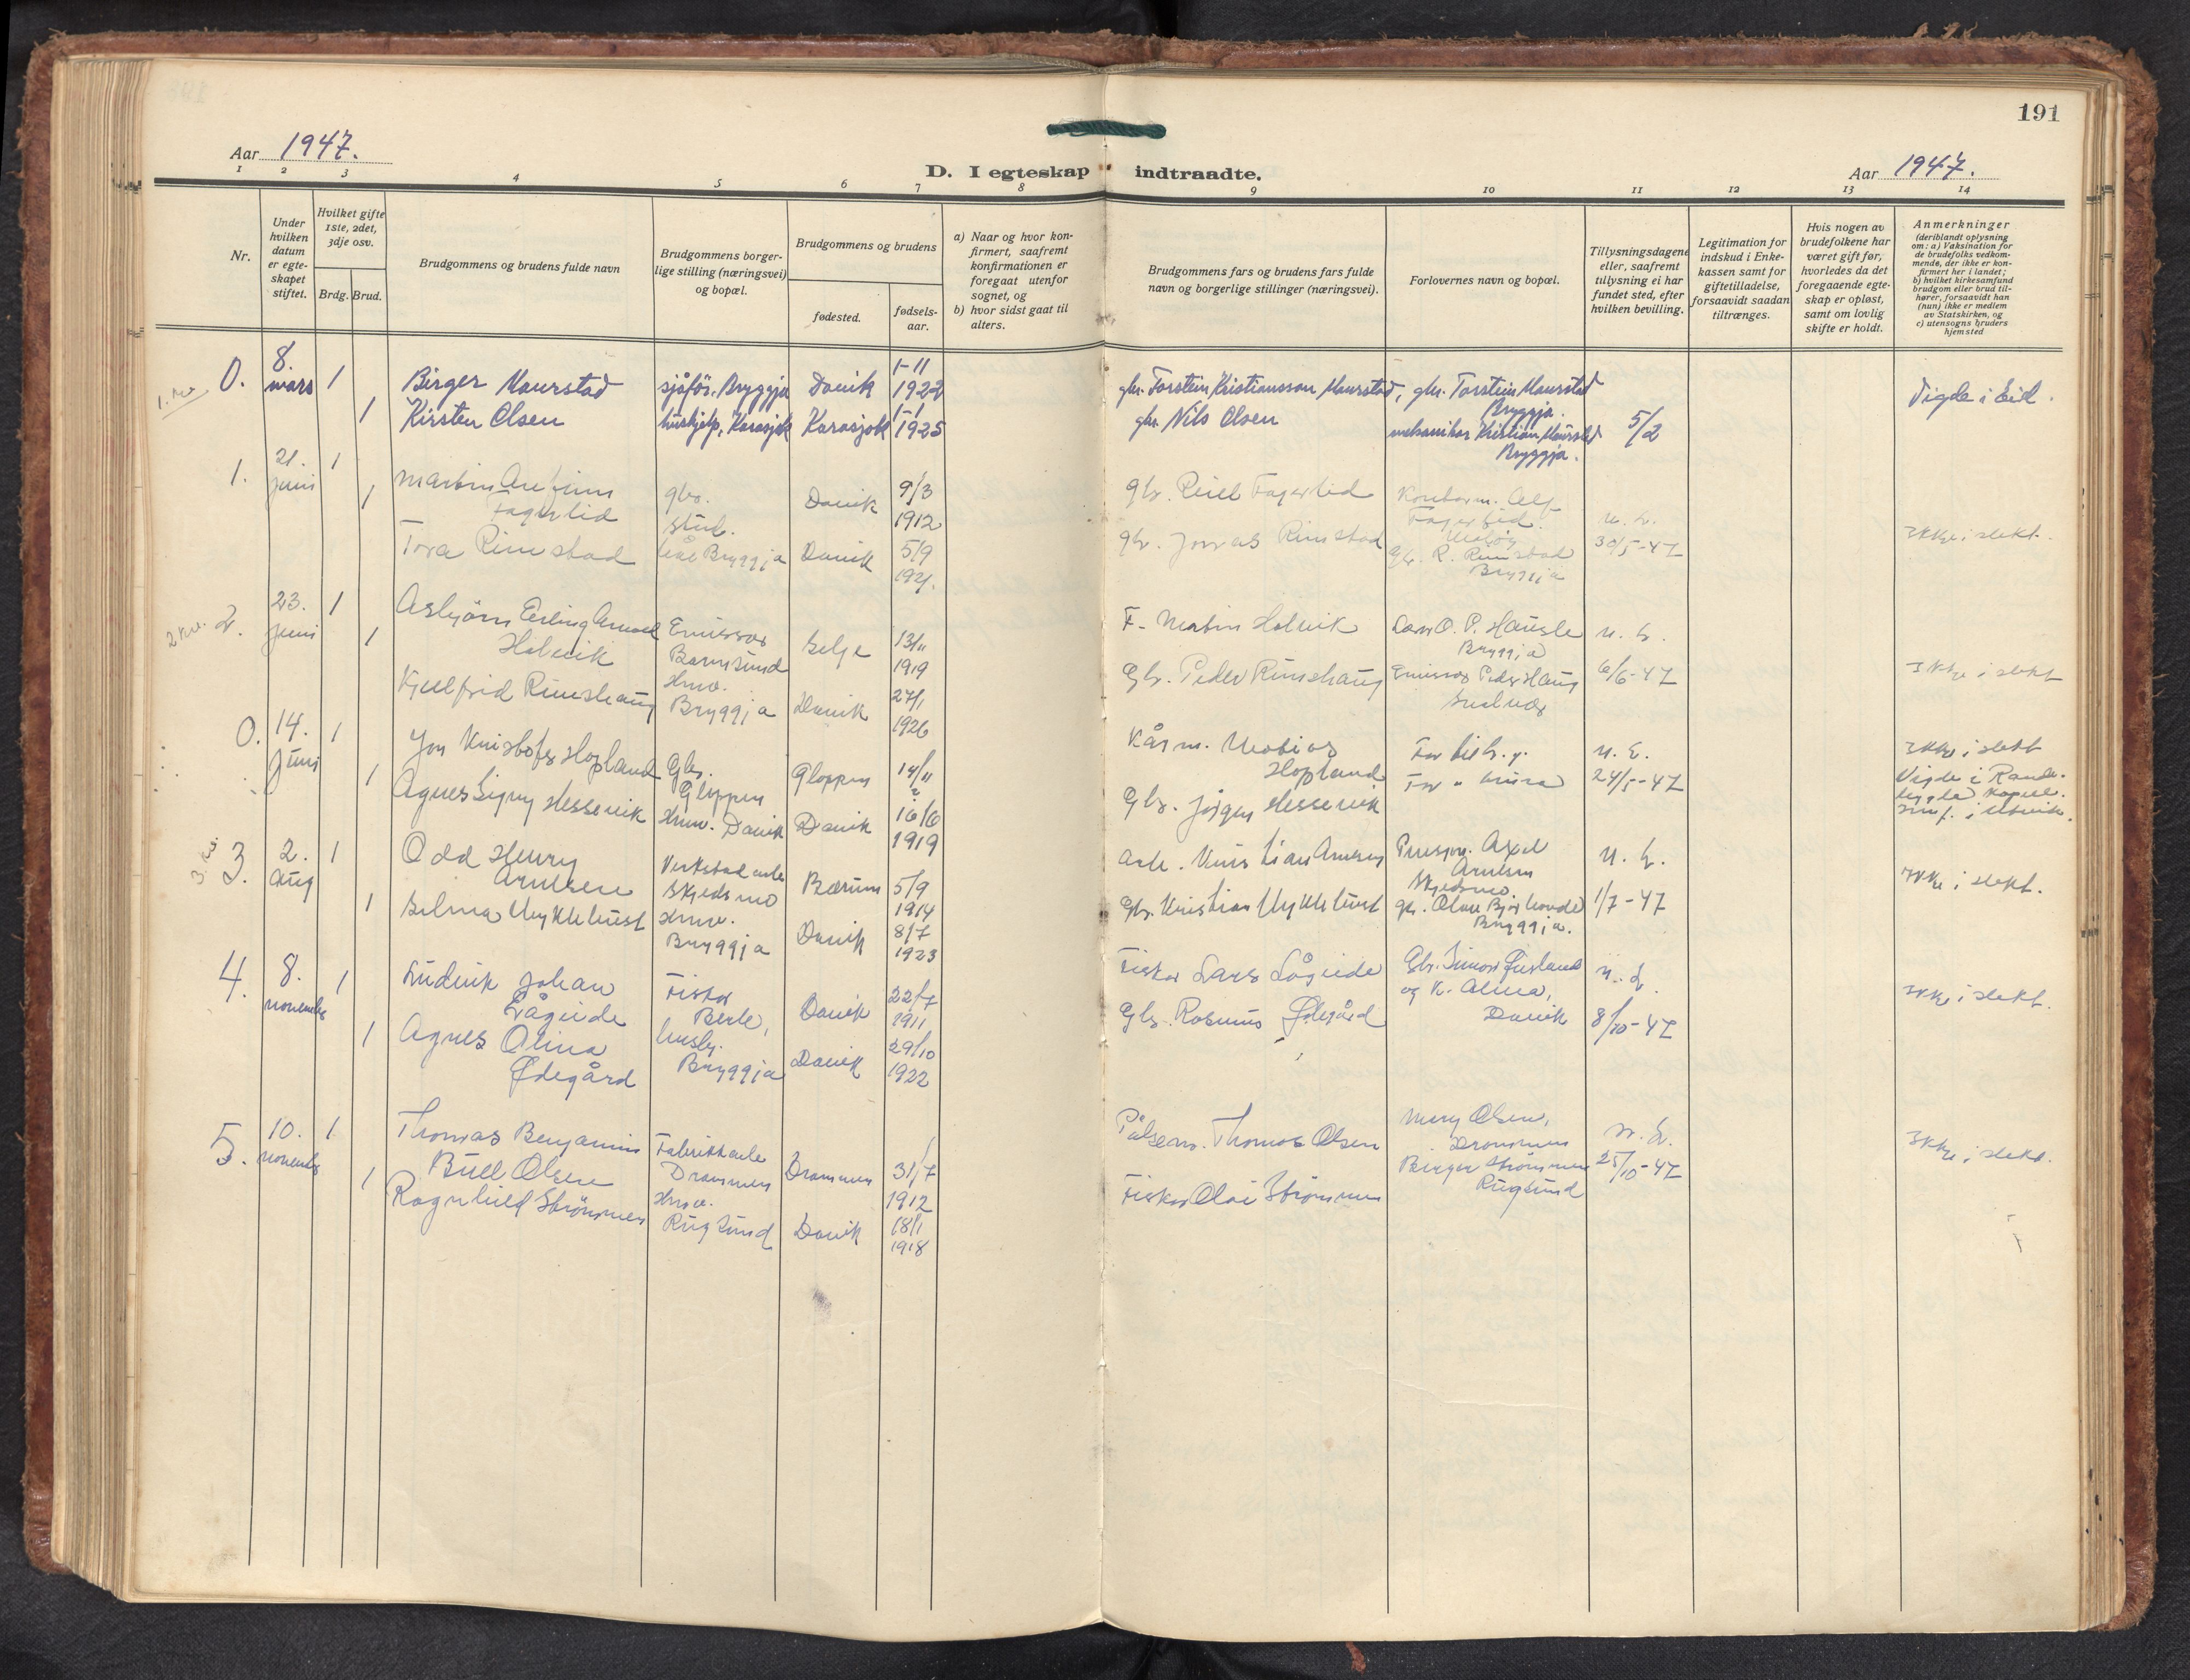 191
Aar 1947.
D. I egteskap indtraadte.
Aar 1947.
1 2 3 4 5 6 7 8 9 10 11 12 13 14
Nr.
Under hvilken datum er egteskapet stiftet.
Hvilket gifte 1ste, 2det, 3dje osv.
Brdg. Brud.
Brudgommens og brudens fulde navn
Brudgommens borgerlige stilling (næringsvei) og bopæl.
Brudgommens og brudens
fødested.
fødselsaar.
a) Naar og hvor konfirmert, saafremt konfirmationen er foregaat utenfor sognet, og
b) hvor sidst gaat til alters.
Brudgommens fars og brudens fars fulde navn og borgerlige stillinger (næringsvei).
Forlovernes navn og bopæl.
Tillysningsdagene eller, saafremt tillysning ei har fundet sted, efter hvilken bevilling.
Legitimation for indskud i Enkekassen samt for giftetilladelse, forsaavidt saadan tiltrænges.
Hvis nogen av brudefolkene har været gift før, hvorledes da det foregaaende egteskap er opløst, samt om lovlig skifte er holdt.
Anmerkninger
(deriblandt oplysning om: a) Vaksination for de brudefolks vedkommende, der ikke er konfirmert her i landet; b) hvilket kirkesamfund brudgom eller brud tilhører, forsaavidt han (hun) ikke er medlem av Statskirken, og c) utensogns bruders hjemsted
0. 8. mars 1 Birger Maurstad sjåfør. Bryggja Davik 1-11 1922 gbr. Torstein Kristiansson Maurstad, gbr. Torstein Maurstad Bryggja. Vigde i Eid.
1 Kirsten Olsen hushjelp, Karasjok Karasjok 1-1 1925 gbr. Nils Olsen mekanikar Kristian Maurstad Bryggja. 5/2
1. 21. juni 1 Martin Arefinn Fagerlid gbr. Davik 9/3 1912 gbr. Fagerlid Kontorm. Alf Fagerlid.
1 Tora Rimstad stud. Bryggja Davik 5/9 1921. gbr. Jonas Rimstad gbr. R. Rimstad Bryggja 30/5-47 Ikke i slekt.
2 kv. 2. 23. juni 1 Asbjørn Erling Holevik Emissær Barmsund Selje 13/11 1919 F. Martin Holevik O. P. Hausle Bryggja
1 Kjellfrid Rimshaug Hmv. Bryggja Davik 27/1 1926 Gbr. Peder Rimshaug Emissær Peder Haug 6/6-47 Ikke i slekt
0. 14. Juni 1 Jon Kristofer Hopland Gbr. Gloppen Gloppen 14/11 Kårm. Mobias Hopland Ikke i slekt
1 Agnes Signy Hessevik Hmv. Davik Davik 16/6 1919 Gbr. Jørgen Hessevik 24/5-47 Vigde i
3. 2. aug 1 Odd Henry Arntsen Verkstadarb. Skjedsmo Bærum 5/9 1914 Arb. Kristian Arntsen Axel Arntsen Skjedsmo.
1 Selma Myklebust Hmv. Bryggja Davik 8/7 1923 Gbr. Kristian Myklebust gbr. Bryggja. 1/7-47 Ikke i slekt.
4. 8. november 1 Ludvik Johan Lågeide Fisker Berle, Davik 22/7 1911 Fisker Lars Lågeide Gbr. Simon og k. Alma, Davik
1 Agnes Olina Ødegård husby. Bryggja Davik 29/10 1922 Gbr. Rasmus Ødegård 8/10-47 Ikke i slekt.
5. 10. november 1 Thomas Benjamin Bull Olsen Fabrikkarb. Drammen Drammen 31/7 1912 Pølsem. Thomas Olsen Mary Olsen, Drammen
1 Ragnhild Strømmen Hmv. Rugsund Davik 18/1 1918 Fisker Olai Strømmen Birger Strømmen Rugsund 25/10-47 Ikke i slekt.